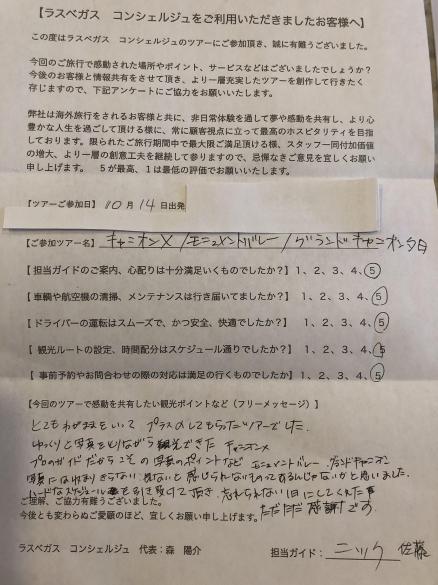 【ラスベガス コンシェルジュをご利用いただきましたお客様へ】
この度はラスベガス コンシェルジュのツアーにご参加頂き、誠に有難うございました。
今回のご旅行で感動された場所やポイント、サービスなどはございましたでしょうか?
今後のお客様と情報共有をさせて頂き、より一層充実したツアーを創作して行きたく
存じますので、下記アンケートにご協力をお願いいたします。
弊社は海外旅行をされるお客様と共に、非日常体験を通して夢や感動を共有し、より心
豊かな人生を過ごして頂ける様に、常に顧客視点に立って最高のホスピタリティを目指
しております。限られたご旅行期間中で最大限ご満足頂ける様、スタッフ一同付加価値
の増大、より一層の創意工夫を継続して参りますので、忌憚なきご意見を宜しくお願い
申し上げます。 5が最高、1は最低の評価でお願いいたします。
【ツアーご参加日】10月14日出発
【ご参加ツアー名】キャニオンX/モニュメントバレー/グランドキャニオン 夕日
【担当ガイドのご案内、心配りは十分満足いくものでしたか?】1、2、3、4、5
【車輌や航空機の清掃、メンテナンスは行き届いてましたか?】1、2、3、4、5
【ドライバーの運転はスムーズで、かつ安全、快適でしたか?】1、2、3、4、5
【観光ルートの設定、時間配分はスケジュール通りでしたか?】1、2、3、4、5
【事前予約やお問合わせの際の対応は満足の行くものでしたか】1、2、3、4、5
【今回のツアーで感動を共有したい観光ポイントなど(フリーメッセージ)】
とてもわがままをいって プラスのしてもらったツアーでした.
ゆっくりと写真をとりながら観光できた キャニオンX
プロのガイドだからこその写真のポイントなど モニュメントバレー、グランドキャニオン
写真には収まりきらない 来ないと感じられないものってあるんじゃないかと思いました.
ハードなスケジュールを引き受けて頂き、忘れられない1日にしてくれた
ただただ 感謝です。
ご理解、ご協力有難うございました。
今後とも変わらぬご愛顧のほど、宜しくお願い申し上げます。
ラスベガス コンシェルジュ 代表:森 陽介
担当ガイド:ニック 佐藤